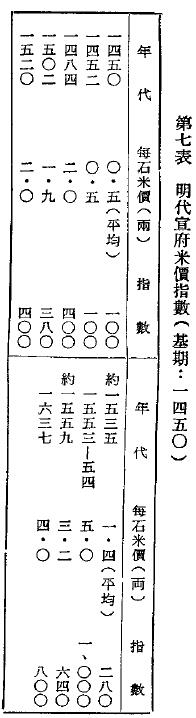 第七表 明代宣府米價指數(基期:一四五〇)
年代 每石米價(兩) 指數
一四五〇 〇・五(平均) 一〇〇
一四五二 〇・五 一〇〇
一四八四 二・〇 四〇〇
一五〇二 一・九 三八〇
一五二〇 二・〇 四〇〇
年代 每石米價(兩) 指數
約一五三五 一・四(平均) 二八〇
一五五三—五四 五・〇 一、〇〇〇
約一五五九 三・二 六四〇
一六三七 四・〇 八〇〇